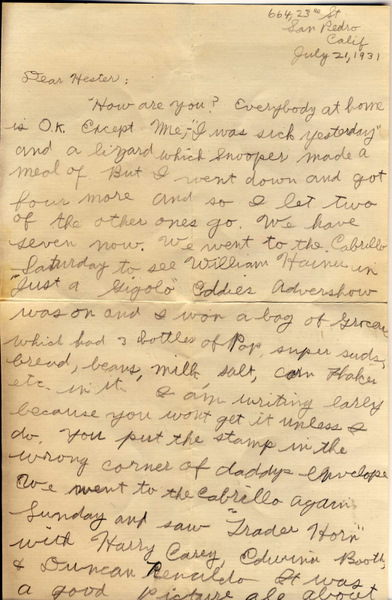 664, 23rd St
San Pedro
Calif
July 21, 1931
Dear Hester;
"How are you? Everybody at home
is O.K. Except Me,-"I was sick yesterday"
and a lizard which Snooper made a
meal of But I went down and got
four more and so I let two
of the other ones go. We have
seven now. We went to the Cabrillo
Saturday to see William Haines in
Just a "Gigolo" Eddies Advershow
was on and I won a bag of Grocer
which had 3 bottles of Pop, super suds,
bread, beans, milk, salt, corn flakes
etc. in it. I am writing early
because you wont get it unless I
do. You put the stamp in the
wrong corner of daddys envelope
We went to the Cabrillo again
Sunday and saw "Trader Horn"
with Harry Carey, Edwina Booth,
& Duncan Renaldo It was
a good picture all about